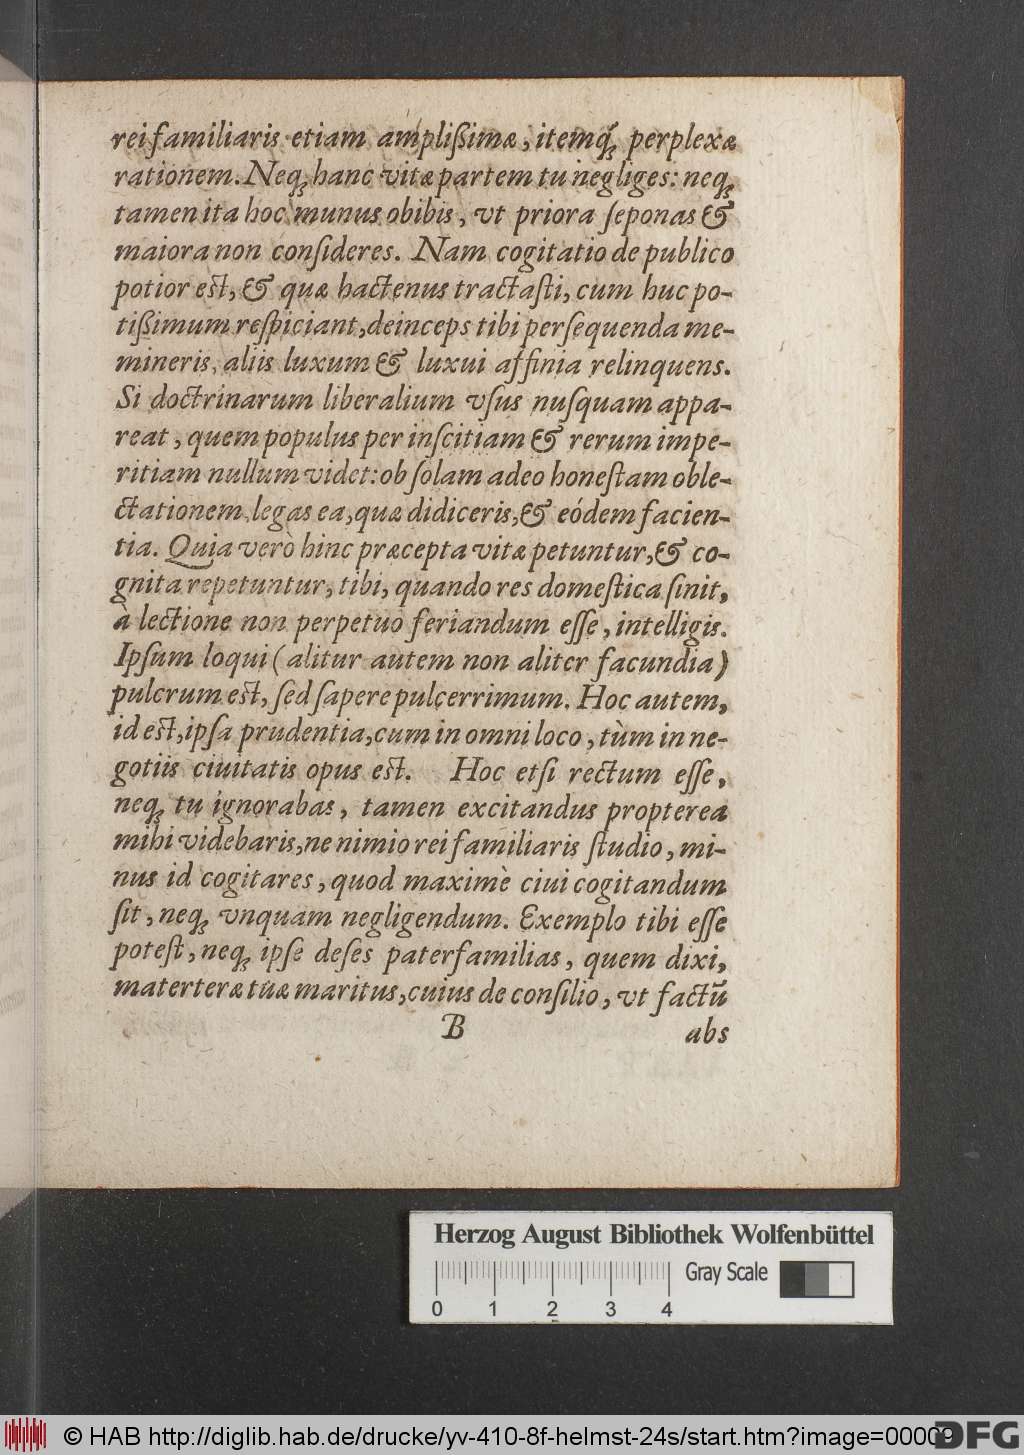 rei familiaris etiam amplißimæ, itemq́ꝫ perplexæ
rationem. Neqꝫ hanc vitæ partem tu negliges: neqꝫ
tamen ita hoc munus obibis, vt priora ſeponas &
maiora non conſideres. Nam cogitatio de publico
potior eſt, & quæ hactenus tractaſti, cum huc po-
tißimum reſpiciant, deinceps tibi perſequenda me-
mineris, aliis luxum & luxui affinia relinquens.
Si doctrinarum liberalium vſus nuſquam appa-
reat, quem populus per inſcitiam & rerum impe-
ritiam nullum videt: ob ſolam adeo honeſtam oble-
ctationem, legas ea, quæ didiceris, & eódem facien-
tia. Quia verò hinc præcepta vitæ petuntur, & co-
gnita repetuntur, tibi, quando res domeſtica ſinit,
à lectione non perpetuò feriandum eſſe, intelligis.
Ipſum loqui (alitur autem non aliter facundia)
pulcrum eſt, ſed ſapere pulcerrimum. Hoc autem,
id eſt, ipſa prudentia, cum in omni loco, tùm in ne-
gotiis ciuitatis opus est. Hoc etſi rectum eſſe,
neqꝫ tu ignorabas, tamen excitandus propterea
mihi videbaris, ne nimio rei familiaris ſtudio, mi-
nus id cogitares, quod maximè ciui cogitandum
ſit, neqꝫ vnquam negligendum. Exemplo tibi eſſe
poteſt, neqꝫ ipſe deſes paterfamilias, quem dixi,
materteræ tuæ maritus, cuius de conſilio, vt factū
B abs
Herzog August Bibliothek Wolfenbüttel
Gray Scale
0 1 2 3 4
© HAB http://diglib.hab.de/drucke/yv-410-8f-helmst-24s/start.htm?image=00009
DFG